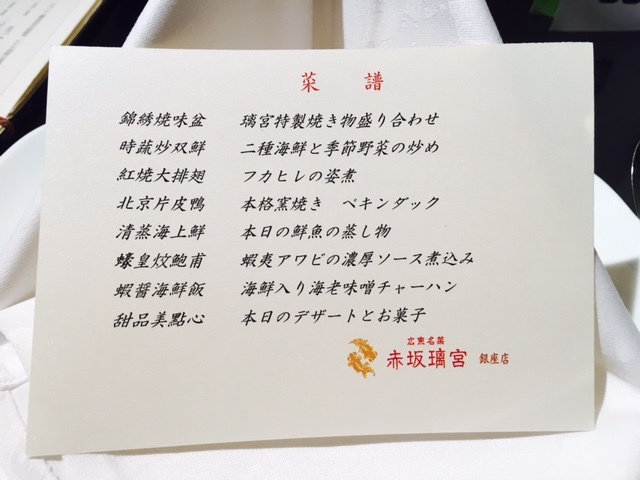 菜 譜
錦綉焼味盆 璃宮特製焼き物盛り合わせ
時蔬炒双鮮 二種海鮮と季節野菜の炒め
紅焼大排翅 フカヒレの姿煮
北京片皮鴨 本格窯焼き ペキンダック
清蒸海上鮮 本日の鮮魚の蒸し物
蠔皇炆鮑甫 蝦夷アワビの濃厚ソース煮込み
蝦醤海鮮飯 海鮮入り海老味噌チャーハン
甜品美點心 本日のデザートとお菓子
広東名菜
赤坂璃宮 銀座店